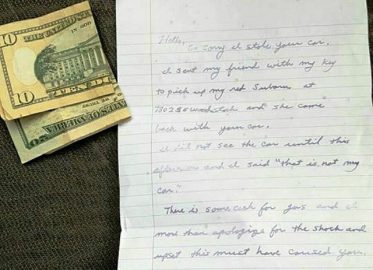 Hello,
So sorry I stole your car.
I sent my friend with my key
to pick up my red Subaru at
7802 SE Woodstock and she came
back with your car.
I did not see the car until this
afternoon and I said "that is not my
car."
There is some cash for gas and I
more than apologize for the shock and
upset this must have caused you.
10
TEN DO
20